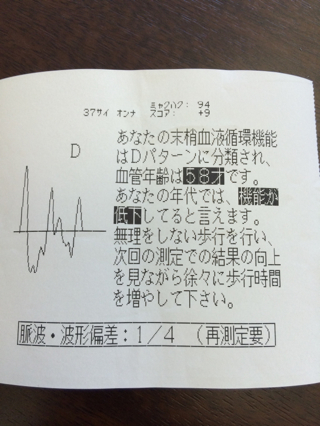 ミャクハク: 94
37サイ オンナ スコア: +9
D
あなたの末梢血液循環機能
はDパターンに分類され、
血管年齢は58才です。
あなたの年代では、機能が
低下してると言えます。
無理をしない歩行を行い、
次回の測定での結果の向上
を見ながら徐々に歩行時間
を増やして下さい。
脈波・波形偏差:1/4 (再測定要)